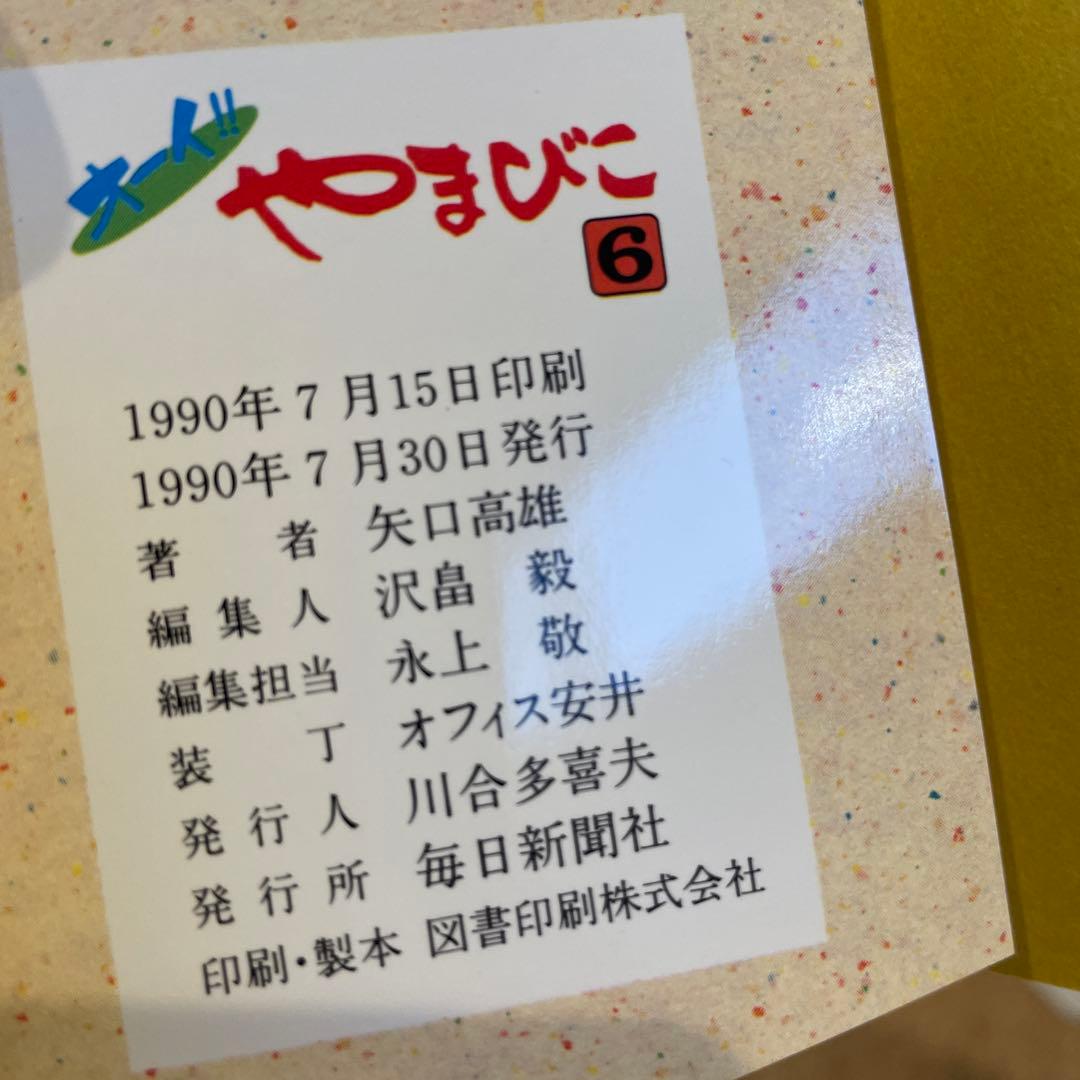 オーイ!!
やまびこ
6
1990年7月15日印刷
1990年7月30日発行
著者 矢口高雄
編集人 沢畠 毅
編集担当 永上 敬
装丁 オフィス安井
発行人 川合多喜夫
発行所 毎日新聞社
印刷・製本 図書印刷株式会社